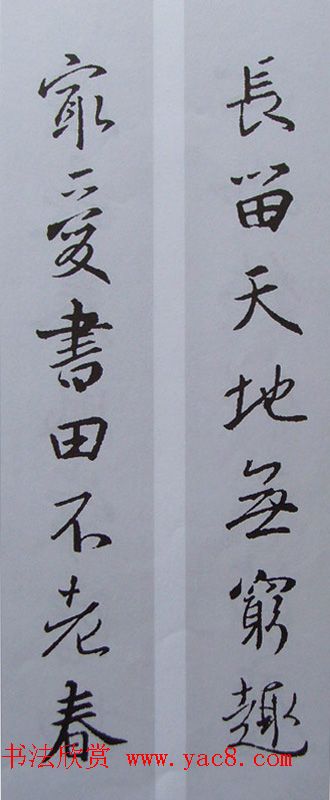 長留天地無窮趣
寂愛書田不老春
书法欣赏 www.yac8.com